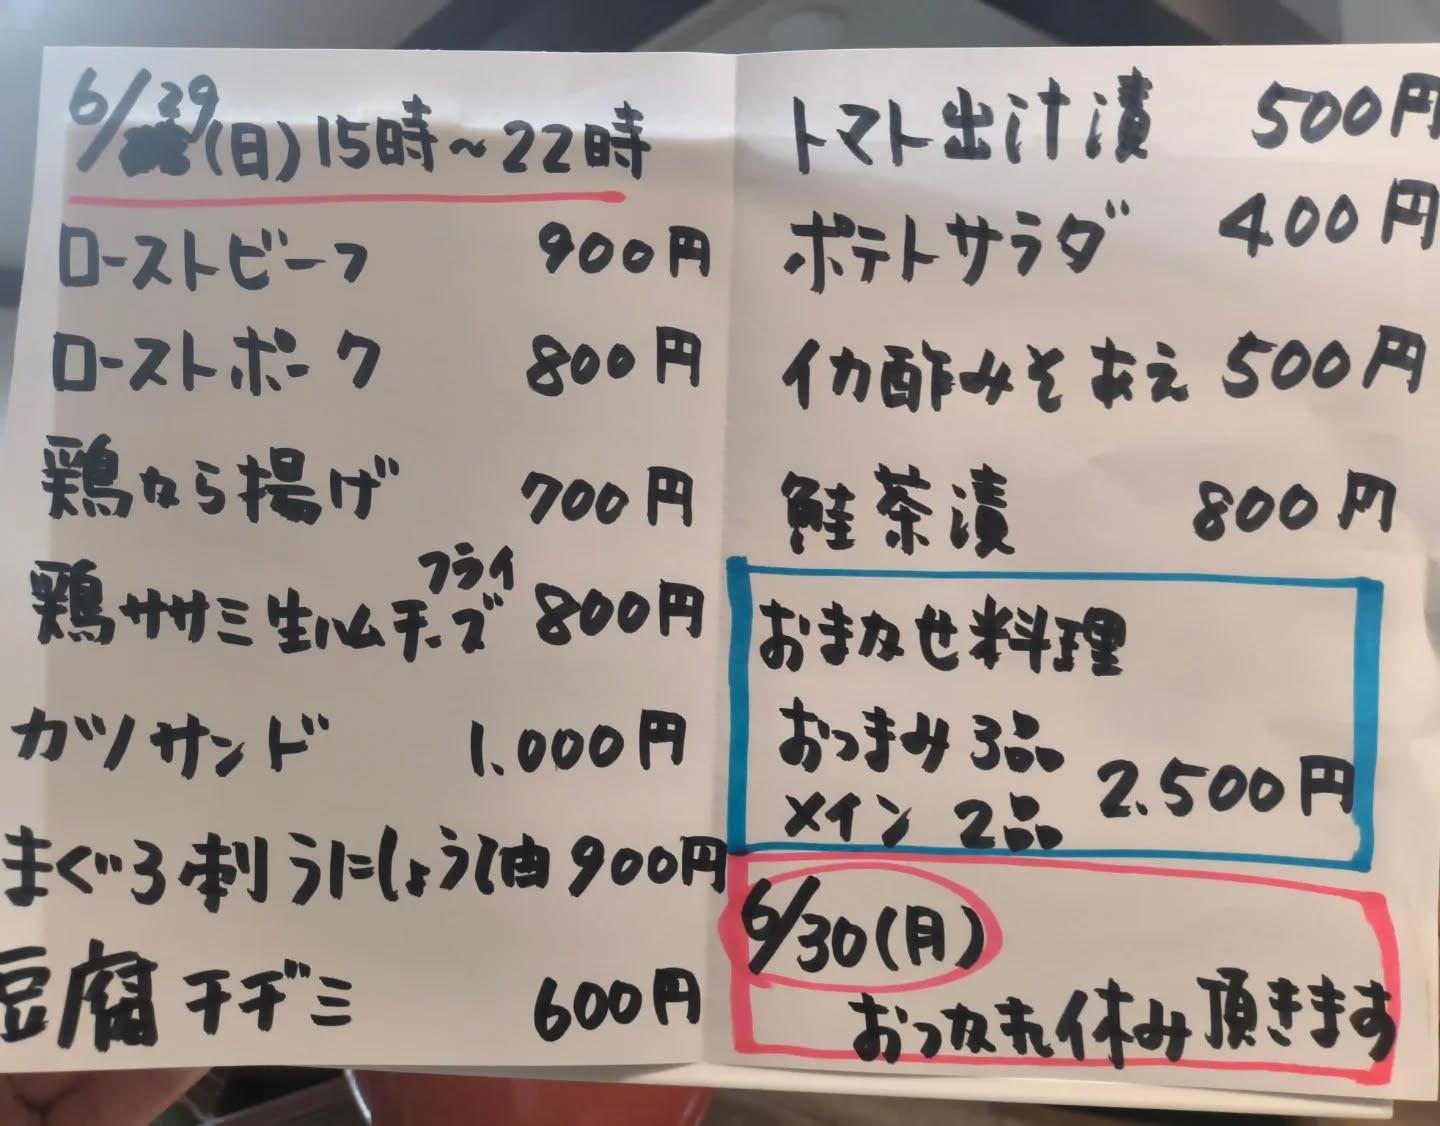 6/29(日)15時～22時
ローストビーフ 900円
ローストポーク 800円
鶏から揚げ 700円
鶏ササミ生ハムチーズフライ 800円
カツサンド 1.000円
まぐろ刺うにしょう油 900円
豆腐チヂミ 600円
トマト出汁漬 500円
ポテトサラダ 400円
イカ酢みそあえ 500円
鮭茶漬 800円
おまかせ料理
おつまみ3品
メイン2品 2.500円
6/30(月)
おつかれ休み頂きます